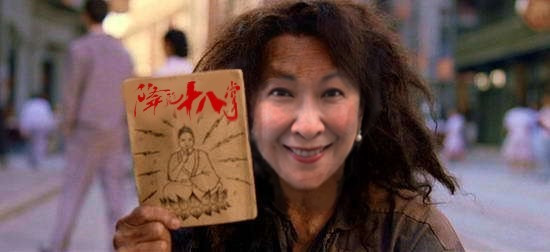 降龙十八掌